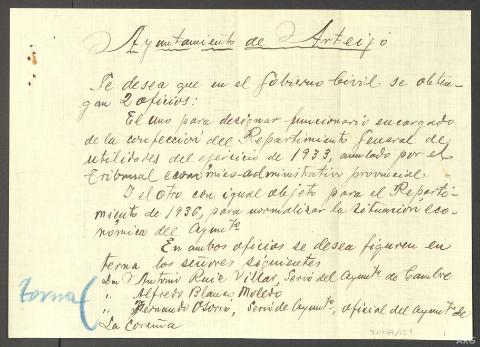 Ayuntamiento de Arteijo
Se desea que en el Gobierno Civil se obten-
gan 2 oficios:
El uno para designar funcionario encargado
de la confección del Repartimiento General de
utilidades del ejercicio de 1933, anulado por el
Tribunal económico-administrativo provincial.
I el otro con igual objeto para el Reparti-
miento de 1936, para normalizar la situación eco-
nómica del Aymtº
En ambos oficios se desea figuren en
terna los señores siguientes
Don Antonio Ruiz Villar, Serio del Aymtº de Cambre
" Alfredo Blanco Moledo
" Hernando Osorio, Serio de Aymtº, oficial del Aymtº de
La Coruña
terna
ARG